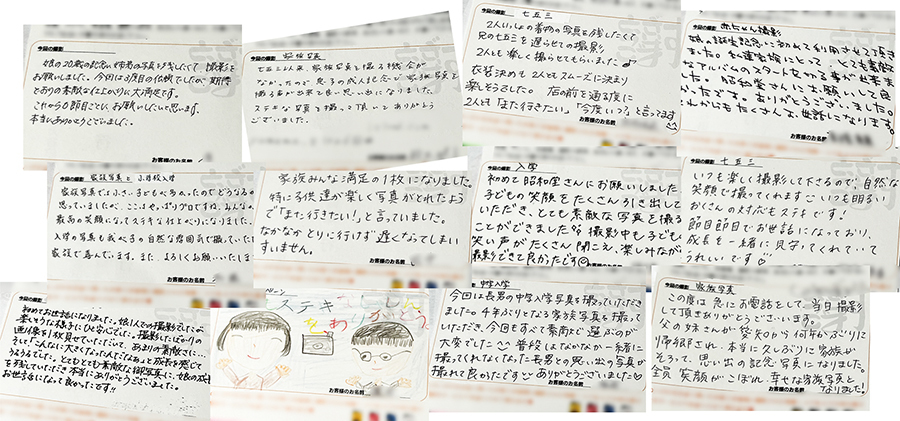 今回の撮影
娘の20歳の記念に姉弟の写真を残したくて、撮影を
お願いしました。今回は3度目の依頼でしたが、期待
とおりの素敵な仕上がりに大満足です。
これから4度目とひお願いしたいと思います。
本当にありがとうございました。
お客様のお名前
今回の撮影 家族写真
七五三以来、家族写真を撮る機会が
なかったので息子の成人記念で家族写真を
撮る事が出来て良い思い出になりました。
ステキな写真を撮って頂いてありがとう
ございました。
今回の撮影 七五三
2人いっしょの着物の写真を残したくて
兄の七五三を遅らせての撮影
2人とも楽しく撮らせてもらいました♪
衣装決めも2人ともスムーズに決まり
楽しそうでした。店の前を通る度に
2人とも「また行きたい」「今度いつ?」と言ってます
お客様のお名前
今回の撮影 赤ちゃん撮影
娘の誕生記念に初めて利用させて頂き
ました。
アルバムのスタートを切る事が出来ま
した。昭和堂さんにお願いして良
かったです。ありがとうございました。
これからもたくさんお世話になります。
お客様のお名前
今回の撮影 家族写真と小学校入学
家族写真では小さい子どもべるため、ったのでどうなるか
思っていましたが、ここはやっぱりプロですね。みんなの
最高の笑顔になってステキな仕上がりになりました。
入学の写真も我べ子の自然な雰囲気で撮っていただ
家族で喜んでいます。また、よろしくお願いいたしま
お客様のお名前
家族みんな満足の1枚になりました。
特に子供達が楽しく写真がとれたよう
で「また行きたい!」と言っていました。
なかなかとりに行けず遅くなってしまい
すいません。
お客様のお名前
今回の撮影 入学
初めて昭和堂さんにお願いしました
子どもの笑顔をたくさん引き出して
いただき、とても素敵な写真を撮る
ことができました 撮影中も子ども
笑い声がたくさん聞こえ、楽しみながら
撮影できて良かったです☺
今回の撮影 七五三
いつも楽しく撮影して下さるので、自然な
笑顔で撮ってくれます☺いつも明るい
おくさんの対応もステキです!
節目節目でお世話になっており、
成長を一緒に見守ってくれていて
うれしいです♡
お客様のお名前
今回の撮影
初めてお世話になりました。娘1人での撮影でしたが
楽しそうな様子にひと安心でした。撮影したばかりの
画像をすぐ拝見せていただいて、あまりの素敵さに…
そして「こんなに大きくなったんだなぁ」と成長を感じて
うるうるでした。ともともとても素敵な御写真に、娘の成長
を残していただき本当にありがとうございました。
お世話になって良かったです!!
ステキな しゃしん
を ありがとう。
お客様のお名前
今回の撮影 中学入学
今回は長男の中学入学写真を撮っていただき
ました。4年ぶりとなる家族写真も撮って
いただき、今回もすべて素敵で選ぶのが
大変でした☺普段はなかなか一緒に
撮ってくれなくなった長男との思い出の写真が
撮れて良かったです☺ありがとうございました♡
お客様のお名前
今回の撮影 家族写真
この度は急にお電話をして、当日撮影
して頂きありがとうございます。
父の妹さんが愛知から何年かぶりに
帰省され、本当に久しぶりに家族が
そろって、思い出の記念写真になりました。
全員笑顔がこぼれ、幸せな家族写真と
なりました!
お客様のお名前